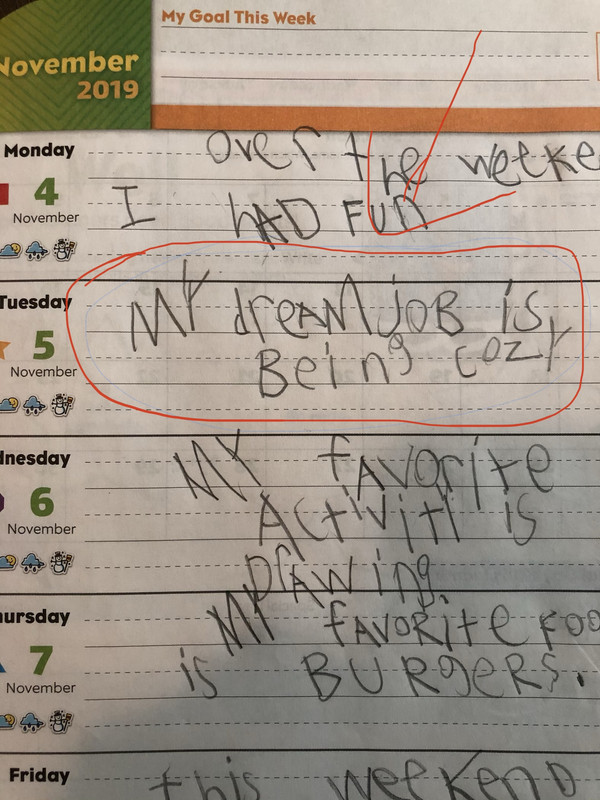 My Goal This Week
November
2019
Monday
over the weeke
4
November
I HAD FUN
Tuesday
MY dreAM JOB is
5
Being cozy
November
dnesday
MY fAvorite
6
Activiti is
November
DrAwing.
ursday
MY fAVORite FOO
7
is BURgeRS.
November
Friday
this weekend